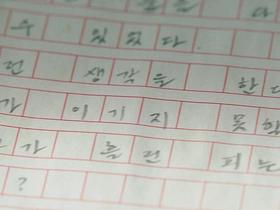 수 있었다.
런 생각을 한다
가 이기지 못할
가 흘린 피는
?